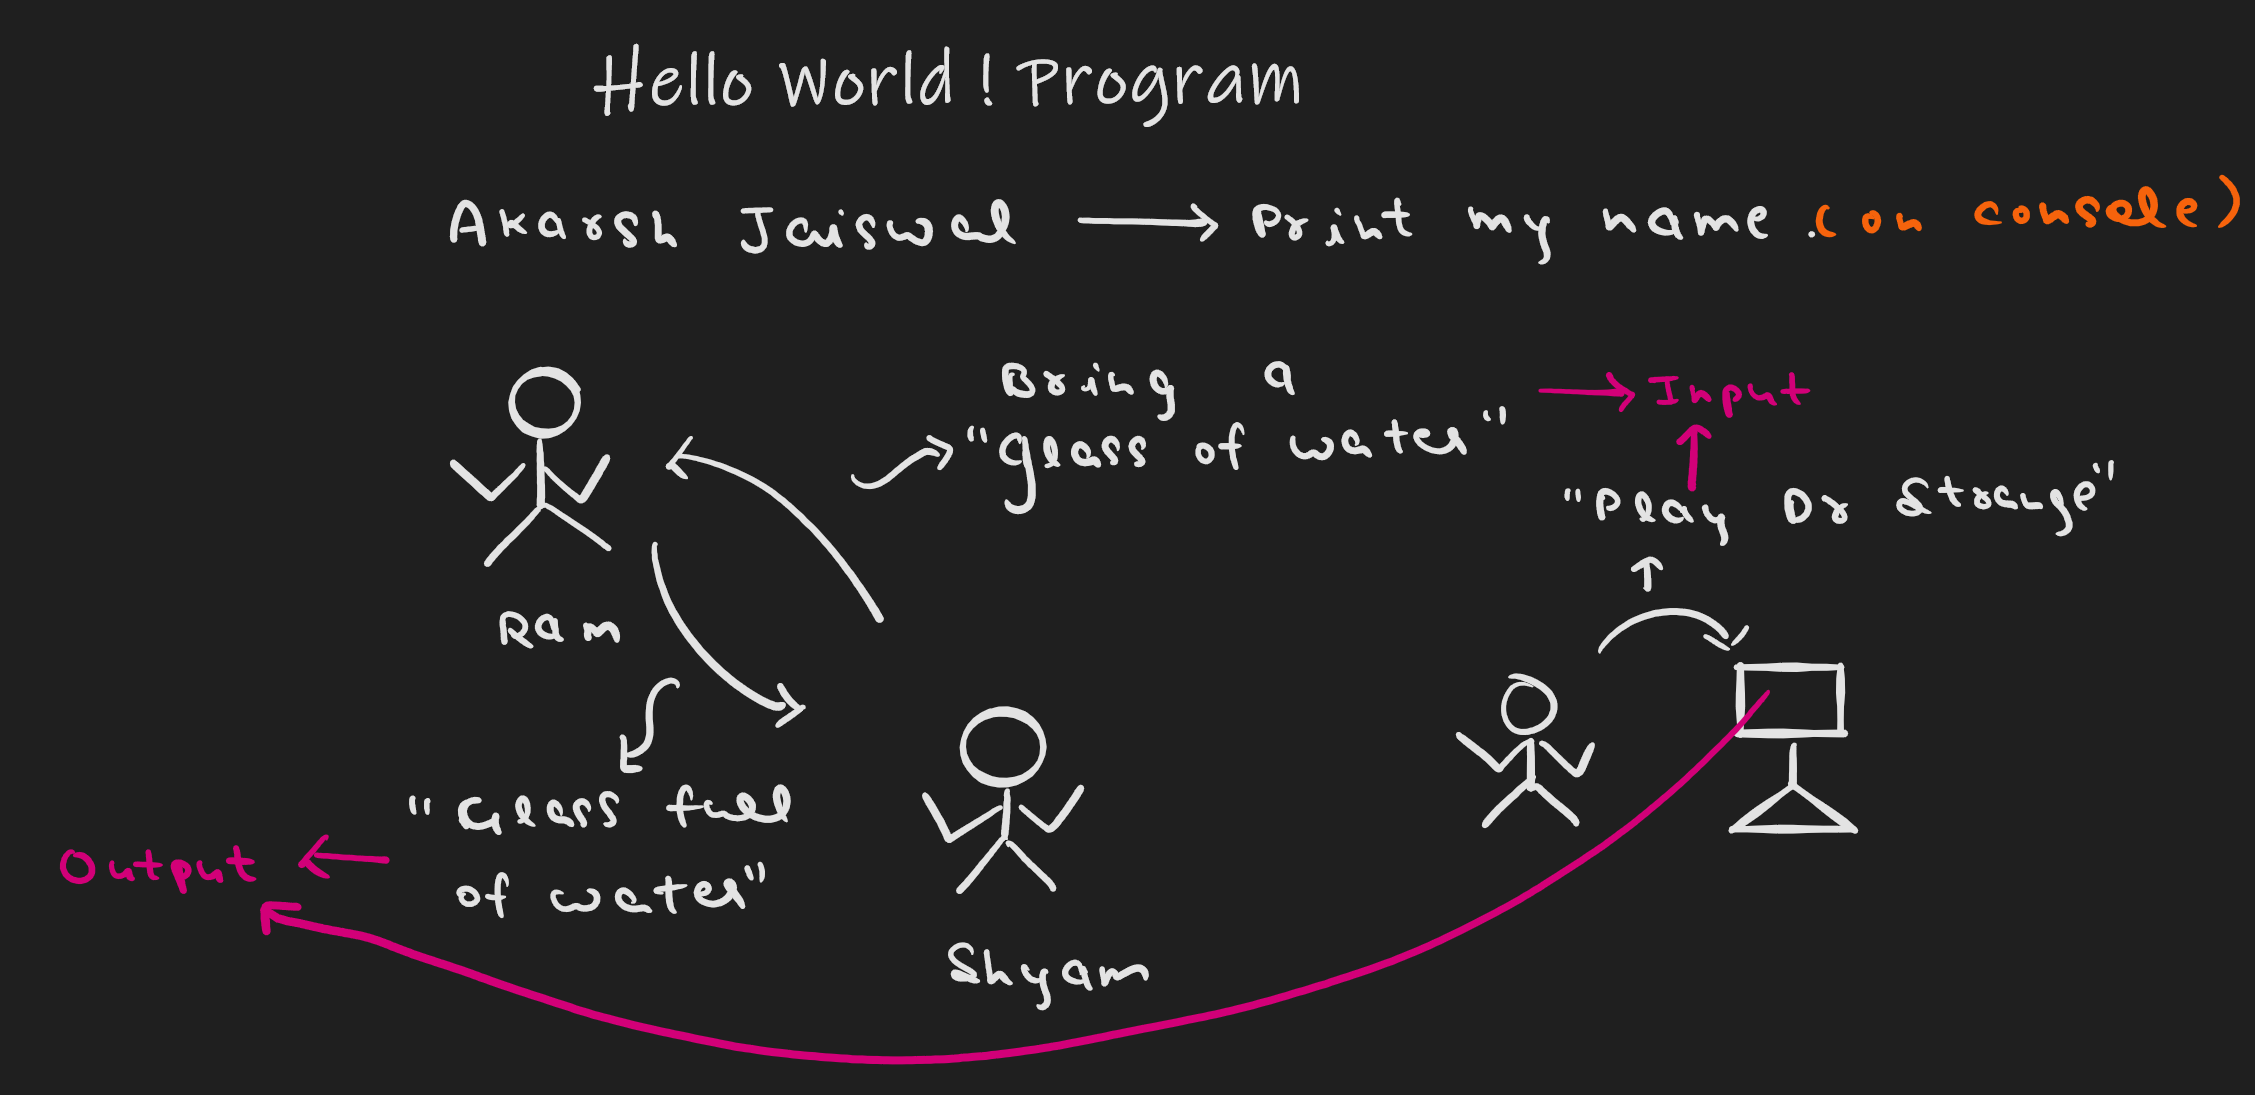 Hello World! Program
Akarsh Jaiswal → Print my name. (on console)
Bring a
"Glass of water" → Input
"Play Dr Strange"
Ram
"Glass full
of water"
Output
Shyam